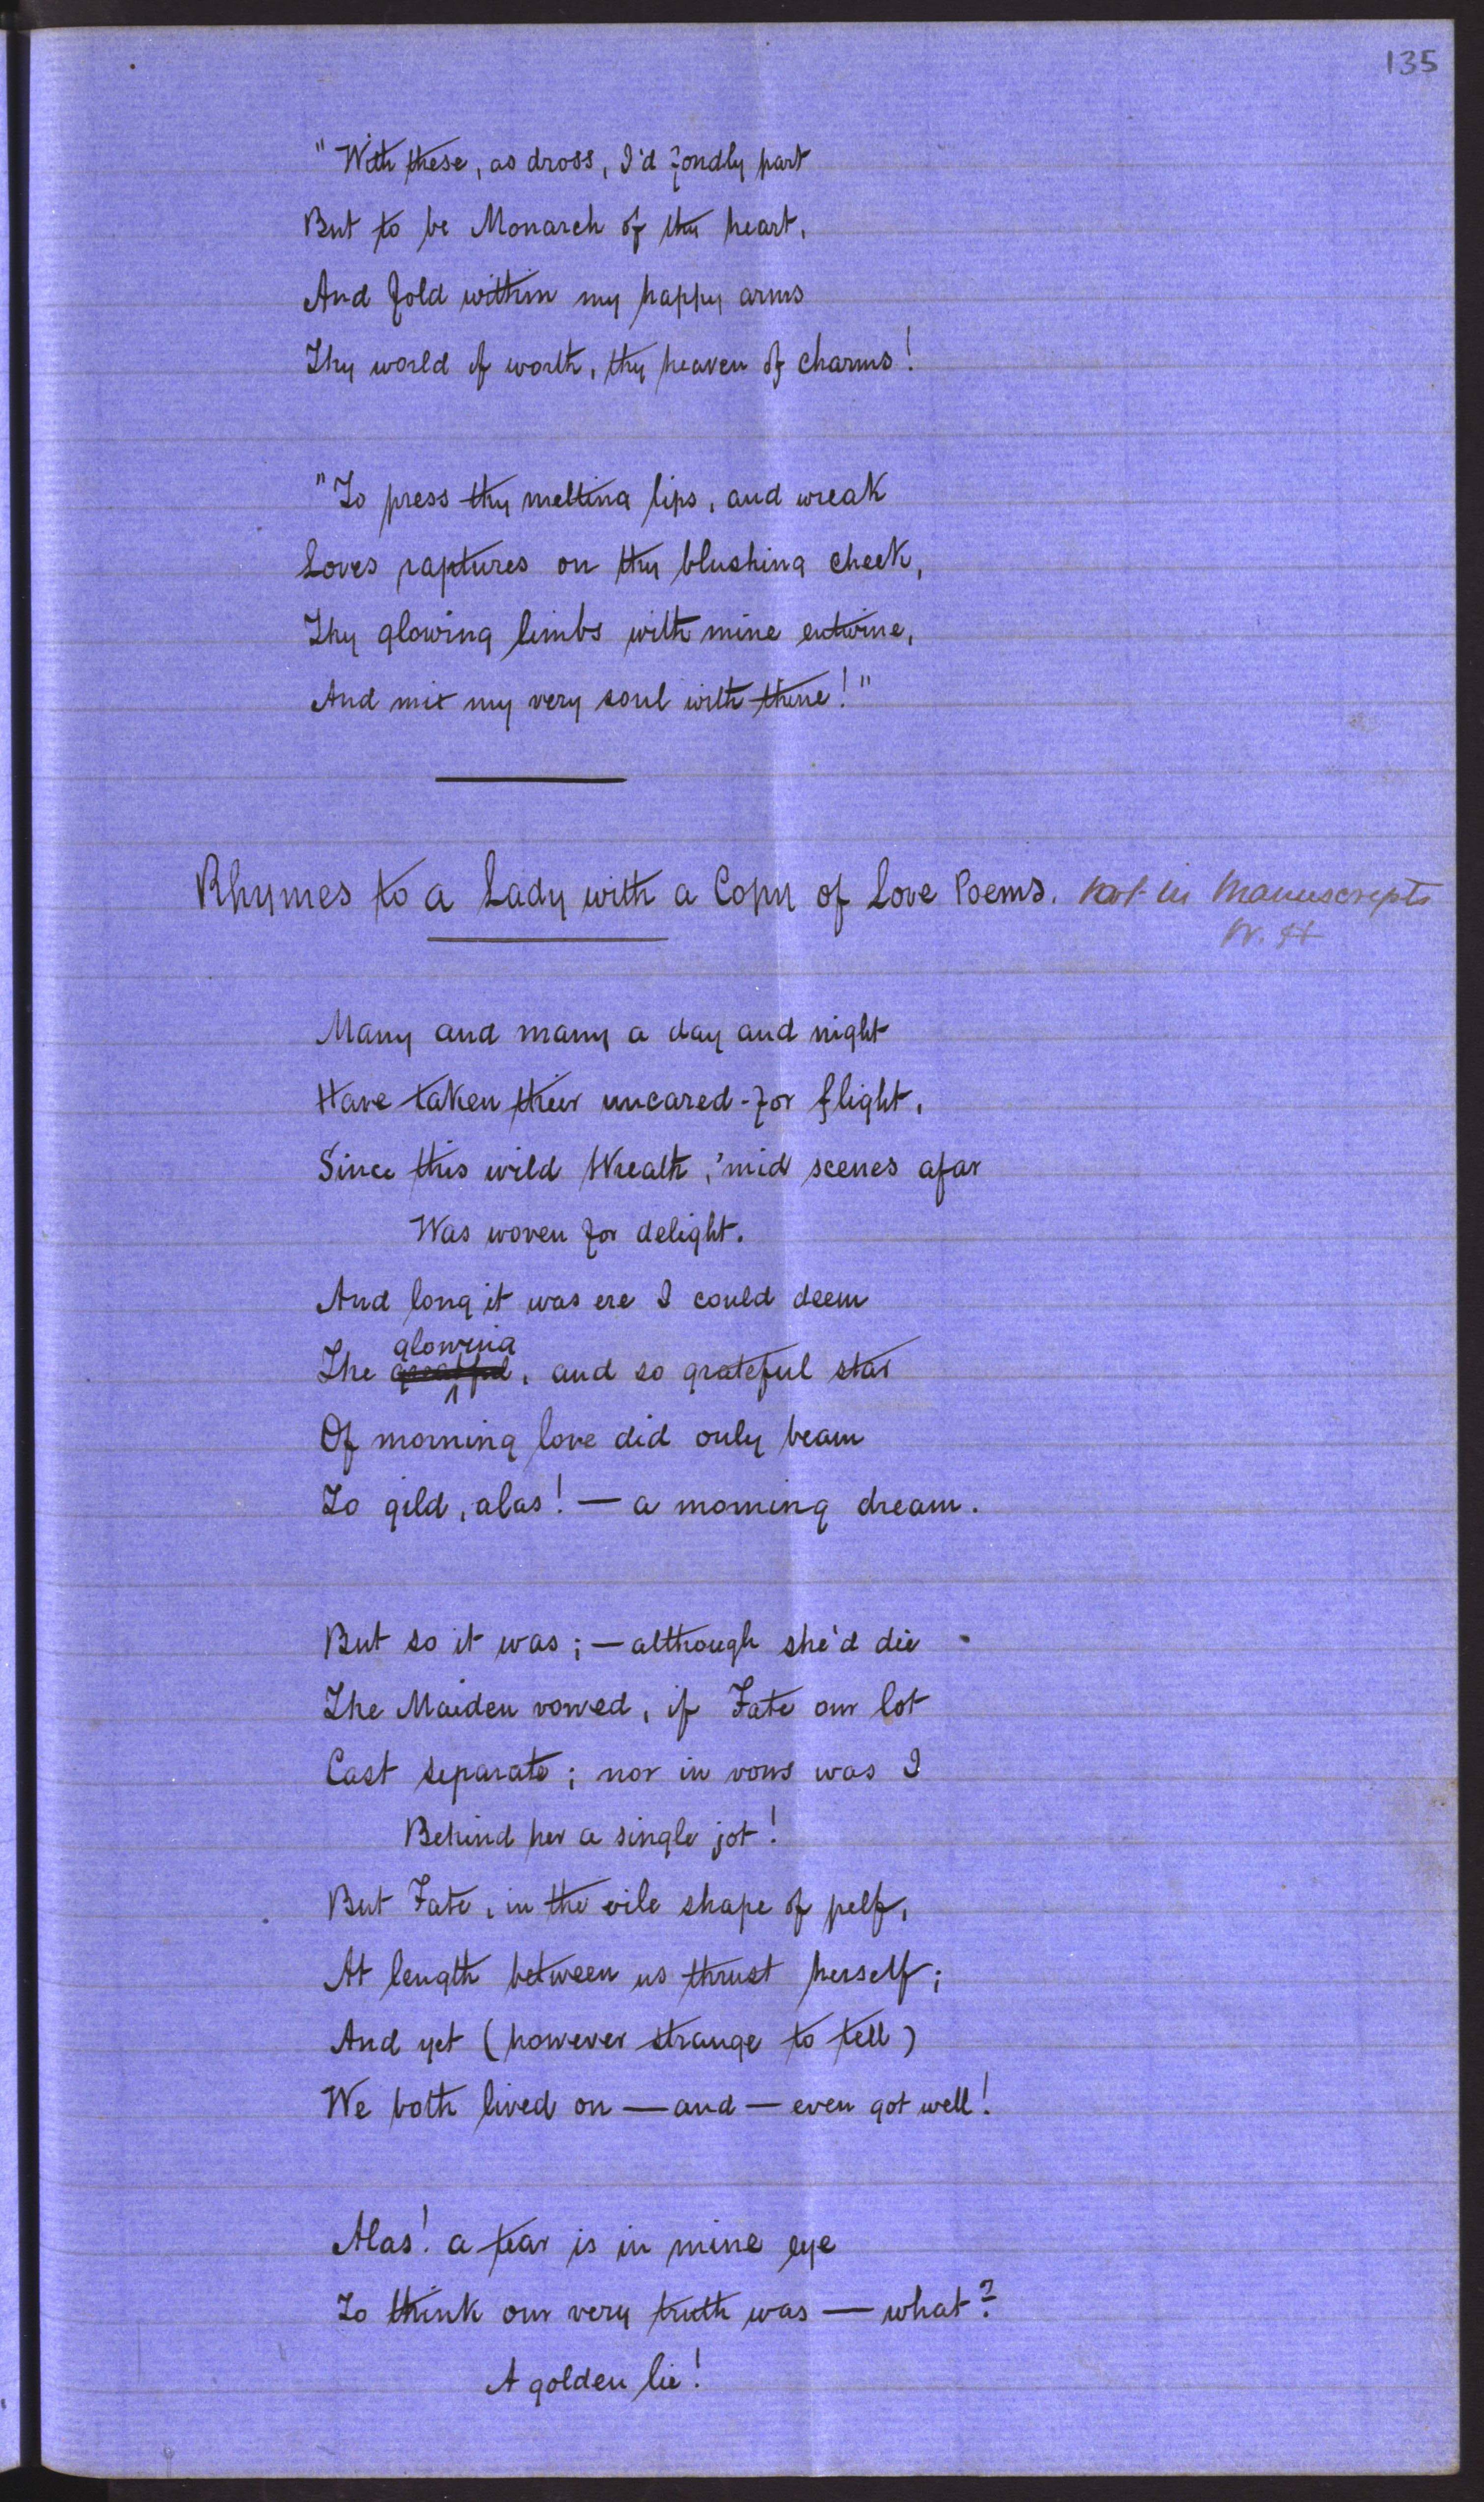 135
"With these, as dross, I'd fondly part
But to be Monarch of thy heart,
And fold within my happy arms
Thy world of worth, thy heaven of charms!
"To press thy melting lips, and wreak
Loves raptures on thy blushing cheek,
Thy glowing limbs with mine entwine,
And mix my very soul with thine!"
Rhymes to a Lady with a Copy of Love Poems. Not in Manuscripts
W. H
Many and many a day and night
Have taken their uncared-for flight,
Since this wild Wreath, 'mid scenes afar
Was woven for delight.
And long it was ere I could deem
glowing
The grateful, and so grateful star
Of morning love did only beam
To gild, alas! — a morning dream.
But so it was; — although she'd die
The Maiden vowed, if Fate our lot
Cast separate; nor in vows was I
Behind her a single jot!
But Fate, in the vile shape of pelf,
At length between us thrust herself;
And yet (however strange to tell)
We both lived on — and — even got well!
Alas! a tear is in mine eye
To think our very truth was — what?
A golden lie!